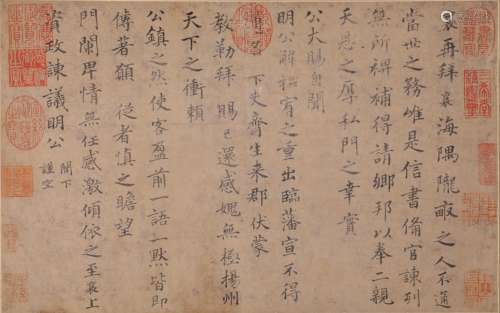 襄再拜襄海隅隴畝之人不通
當世之務唯是信書備官諫列
無所裨補得請鄉邦以奉二親
天恩之厚私門之幸實
公大賜自聞
明公解樞宥之重出臨藩宣不得
通名下吏齊生來郡伏蒙
教勒拜賜已還感愧無極揚州
天下之衝賴
公鎮之然使客盈前一語一默皆即
傳著願從者慎之瞻望
門闌卑情無任感激傾依之至襄上
資政諫議明公閤下
謹空